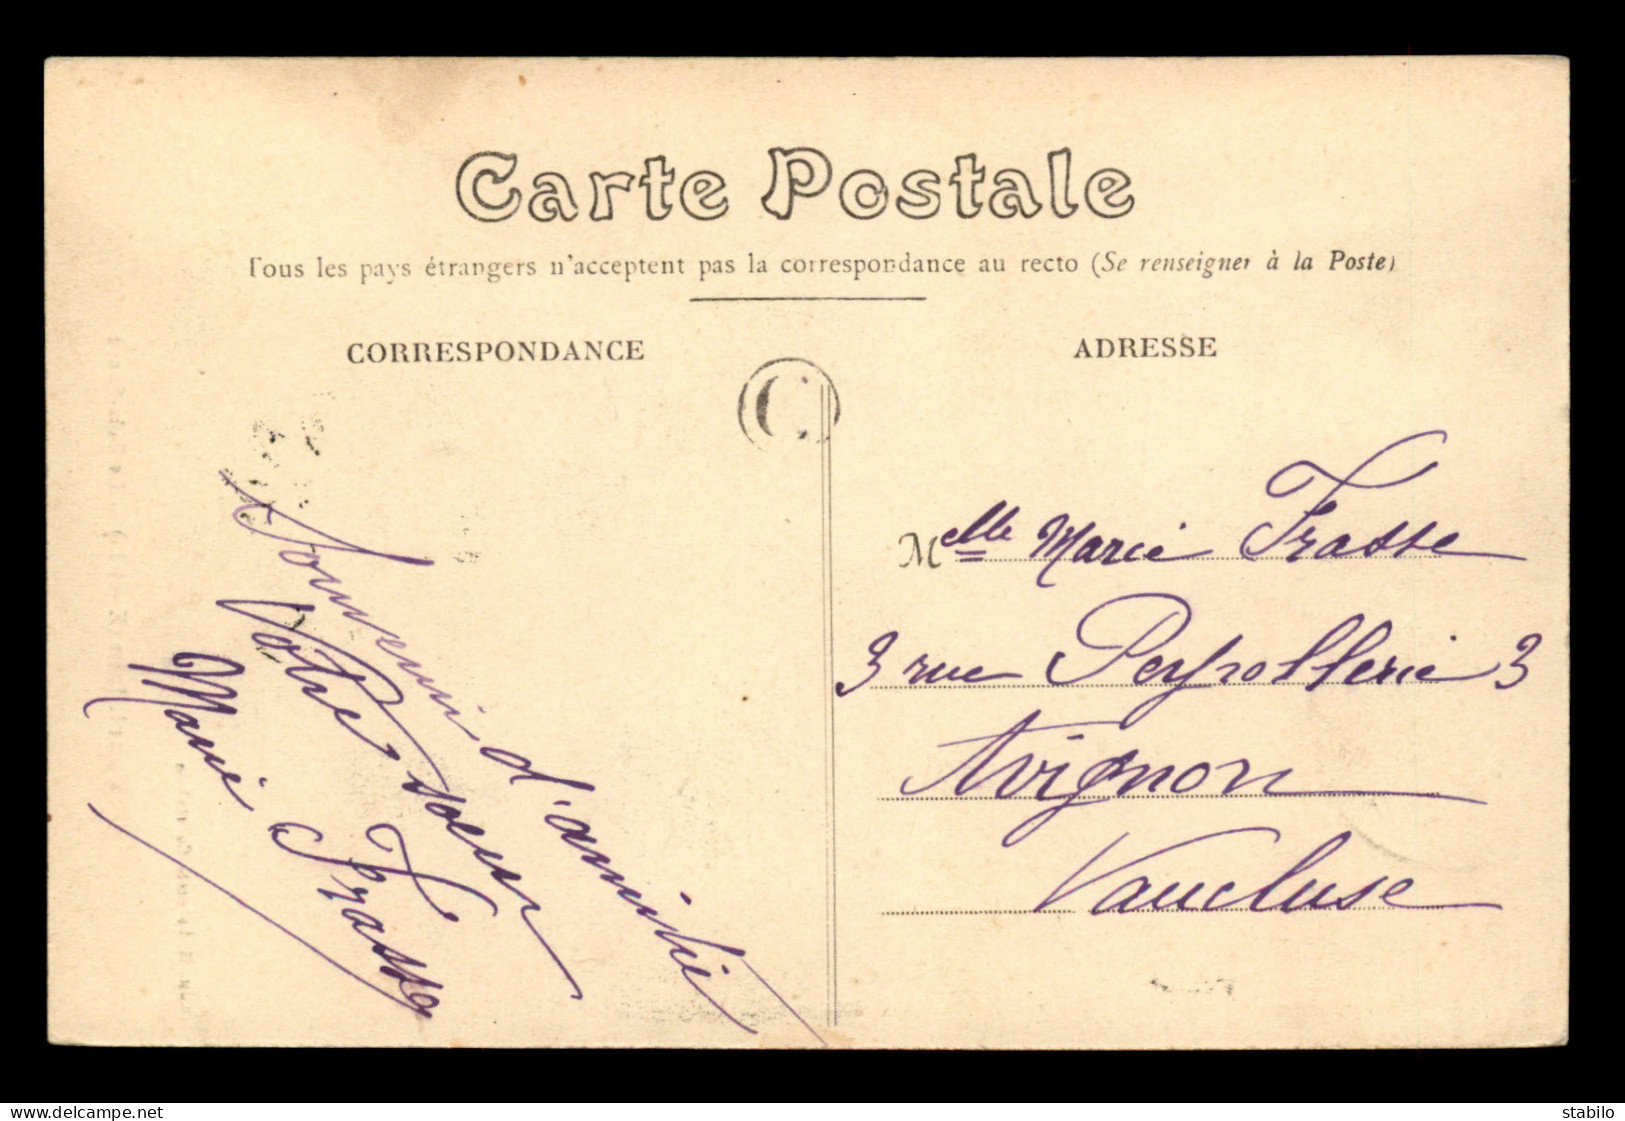 Carte Postale
Tous les pays étrangers n'acceptent pas la correspondance au recto (Se renseigner à la Poste)
CORRESPONDANCE
ADRESSE
C
Souvenir d'amitié
Votre soeur
Marie Frasse
Melle Marie Frasse
3 rue Peyrollerie 3
Avignon
Vaucluse
www.delcampe.net
stabilo